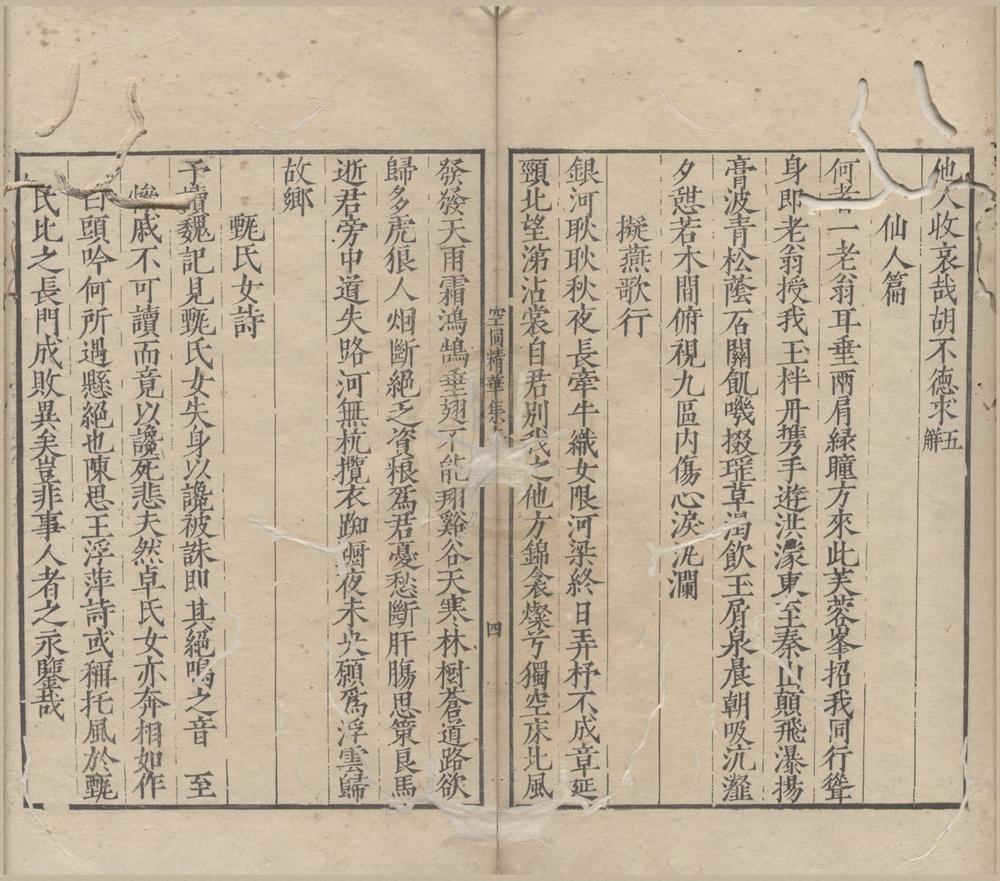 他人收哀哉胡不德求五解
仙人篇
何者一老翁耳垂兩肩緑瞳方來此芙蓉峯招我同行聳
身即老翁授我玉柈丹携手遊洪濛東至秦山顛飛瀑揚
膏波青松蔭石關飢嘰掇瑶草渴飲玉屑泉晨朝吸沆瀣
夕憇若木間俯視九區內傷心淚汍瀾
擬燕歌行
銀河耿耿秋夜長牽牛織女限河梁終日弄杼不成章延
頸北望涕沾裳自君別我之他方錦衾燦兮獨空床北風
空同精華集
四
發發天雨霜鴻鵠垂翅不能翔谿谷天寒林樹蒼道路欲
歸多虎狼人烟斷絕乏資粮爲君憂愁斷肝腸思策良馬
逝君旁中道失路河無杭攬衣踟躕夜未央願爲浮雲歸
故鄉
甄氏女詩
予讀魏記見甄氏女失身以讒被誅即其絕鳴之音 至
慘戚不可讀而竟以讒死悲夫然卓氏女亦奔相如作
白頭吟何所遇懸絕也陳思王浮萍詩或稱托風於甄
氏比之長門成敗異矣豈非事人者之永鑒哉